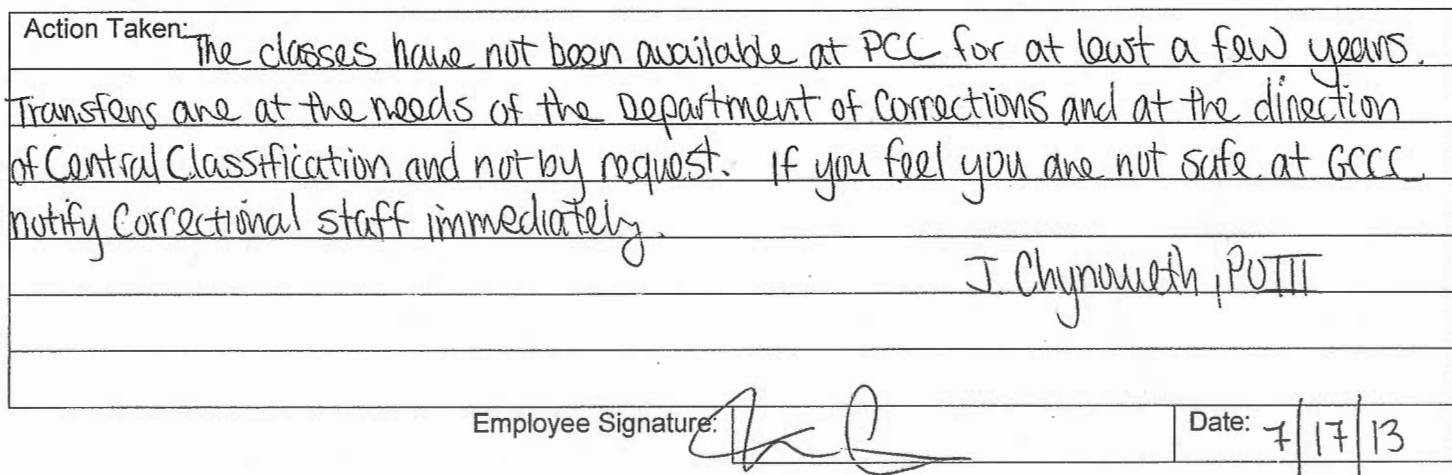 Action Taken: The classes have not been available at PCC for at least a few years.
Transfers are at the needs of the Department of Corrections and at the direction
of Central Classification and not by request. If you feel you are not safe at GCCC
notify Correctional staff immediately.
J. Chynoweth, POIII
Employee Signature: Date: 7/17/13